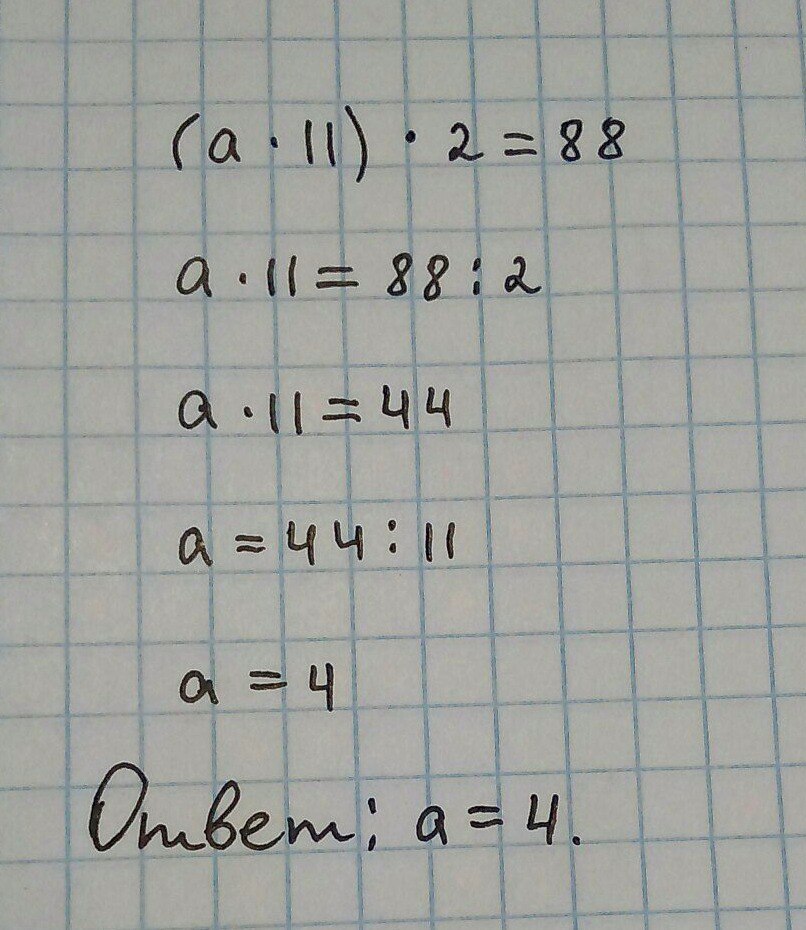 (a · 11) · 2 = 88
a · 11 = 88 : 2
a · 11 = 44
a = 44 : 11
a = 4
Ответ: a = 4.